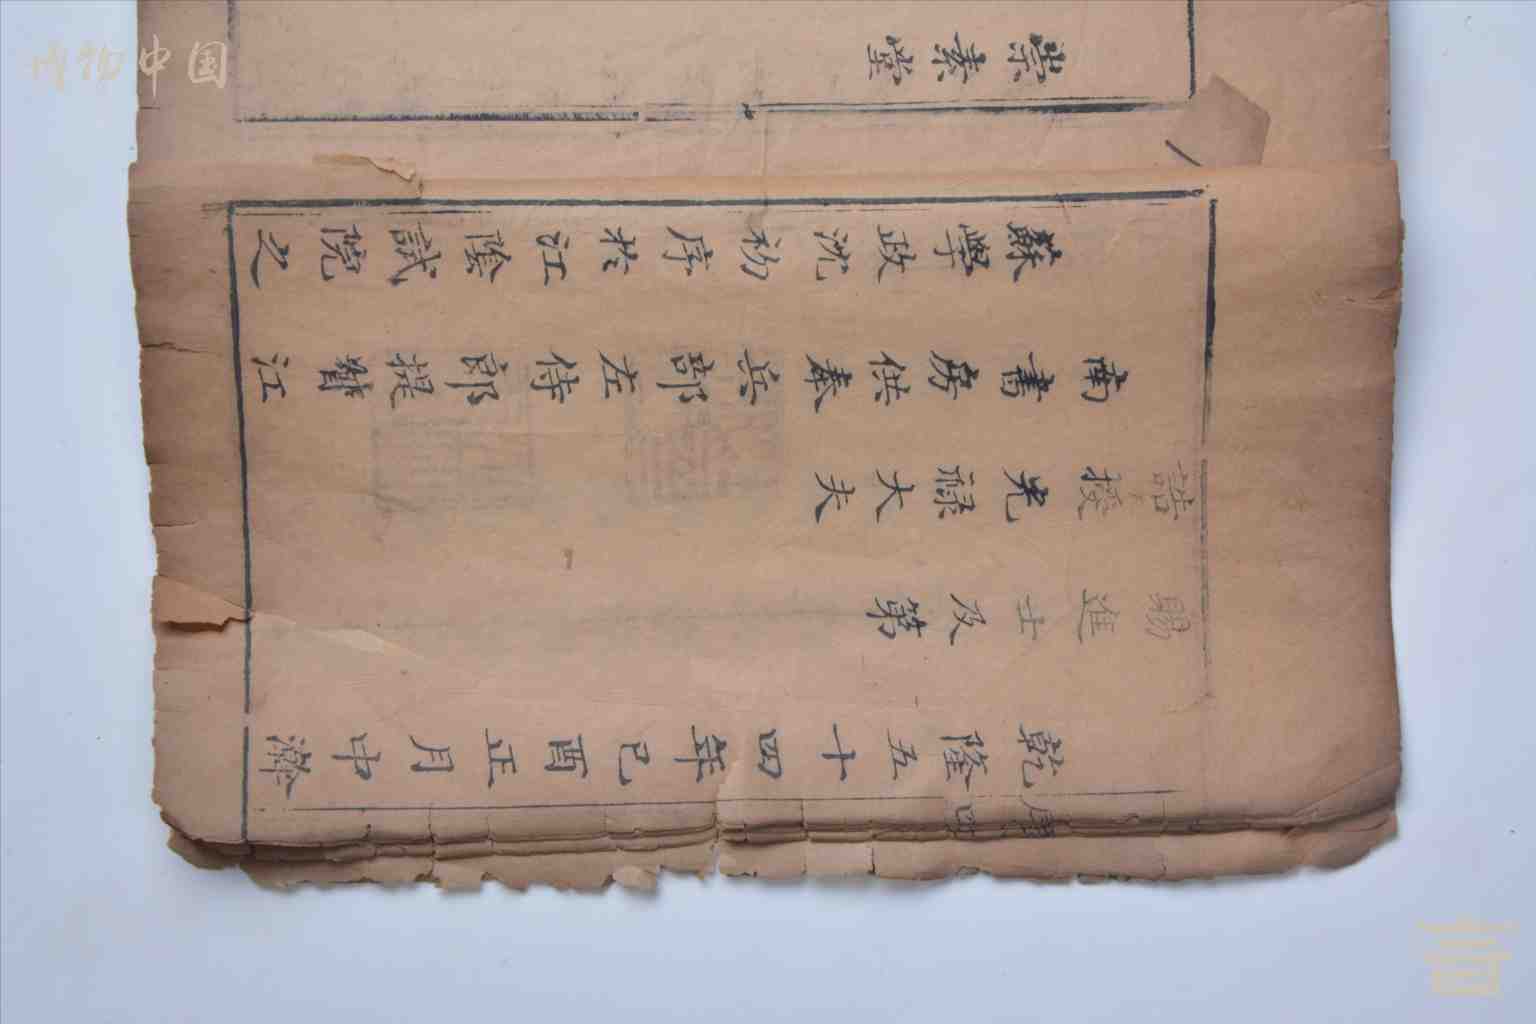 乾隆五十四年己酉正月中澣
賜進士及第
誥授光祿大夫
南書房供奉兵部左侍郎提督江
蘇學政沈初序於江陰試院之
崇素堂
博物中国